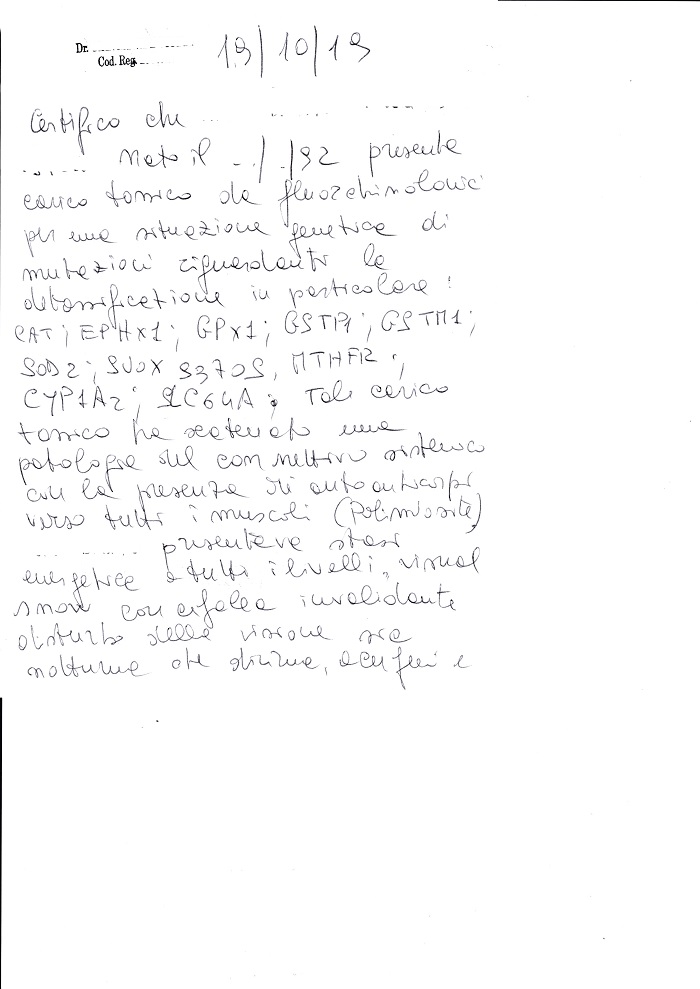 Dr.
Cod. Reg.
19/10/19
Certifico che
nato il ../../92 presenta
carico tossico da fluorchinolonici
per una situazione genetica di
mutazioni riguardanti la
detossificazione in particolare:
CAT; EPHX1; GPX1; GSTP1; GSTM1;
SOD2; SUOX S370S, MTHFR;
CYP1A2; SLC64A; Tale carico
tossico ha scatenato una
patologia del connettivo sistemica
con la presenza di autoanticorpi
verso tutti i muscoli (Polimiosite)
presentava stasi
energetica a tutti i livelli, visual
snow con cefalea invalidante
disturbo della visione sia
notturna che diurna, acufeni e